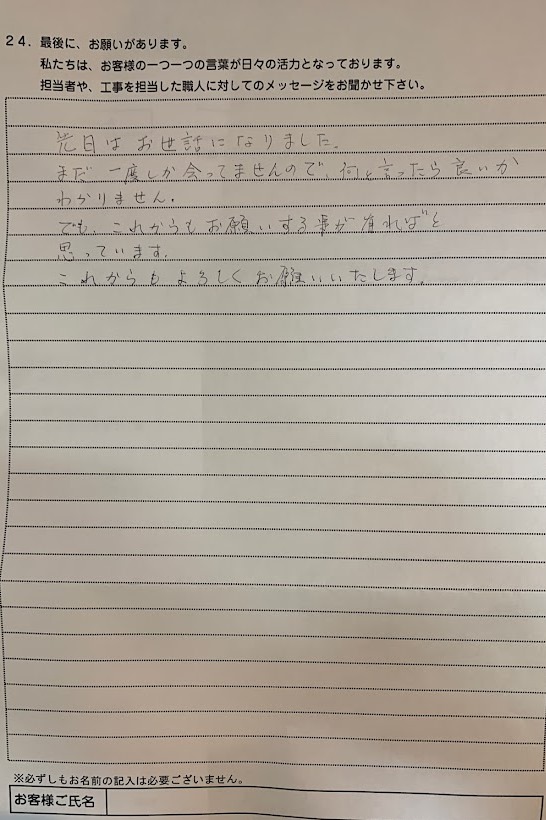 24. 最後に、お願いがあります。
私たちは、お客様の一つ一つの言葉が日々の活力となっております。
担当者や、工事を担当した職人に対してのメッセージをお聞かせ下さい。
先日は お世話に なりました。
まだ 一度しか会ってませんので、何と言ったら良いか
わかりません。
でも、これからも お願いする事が有ればと
思っています。
これからも よろしく お願いいたします。
※必ずしもお名前の記入は必要ございません。
お客様ご氏名